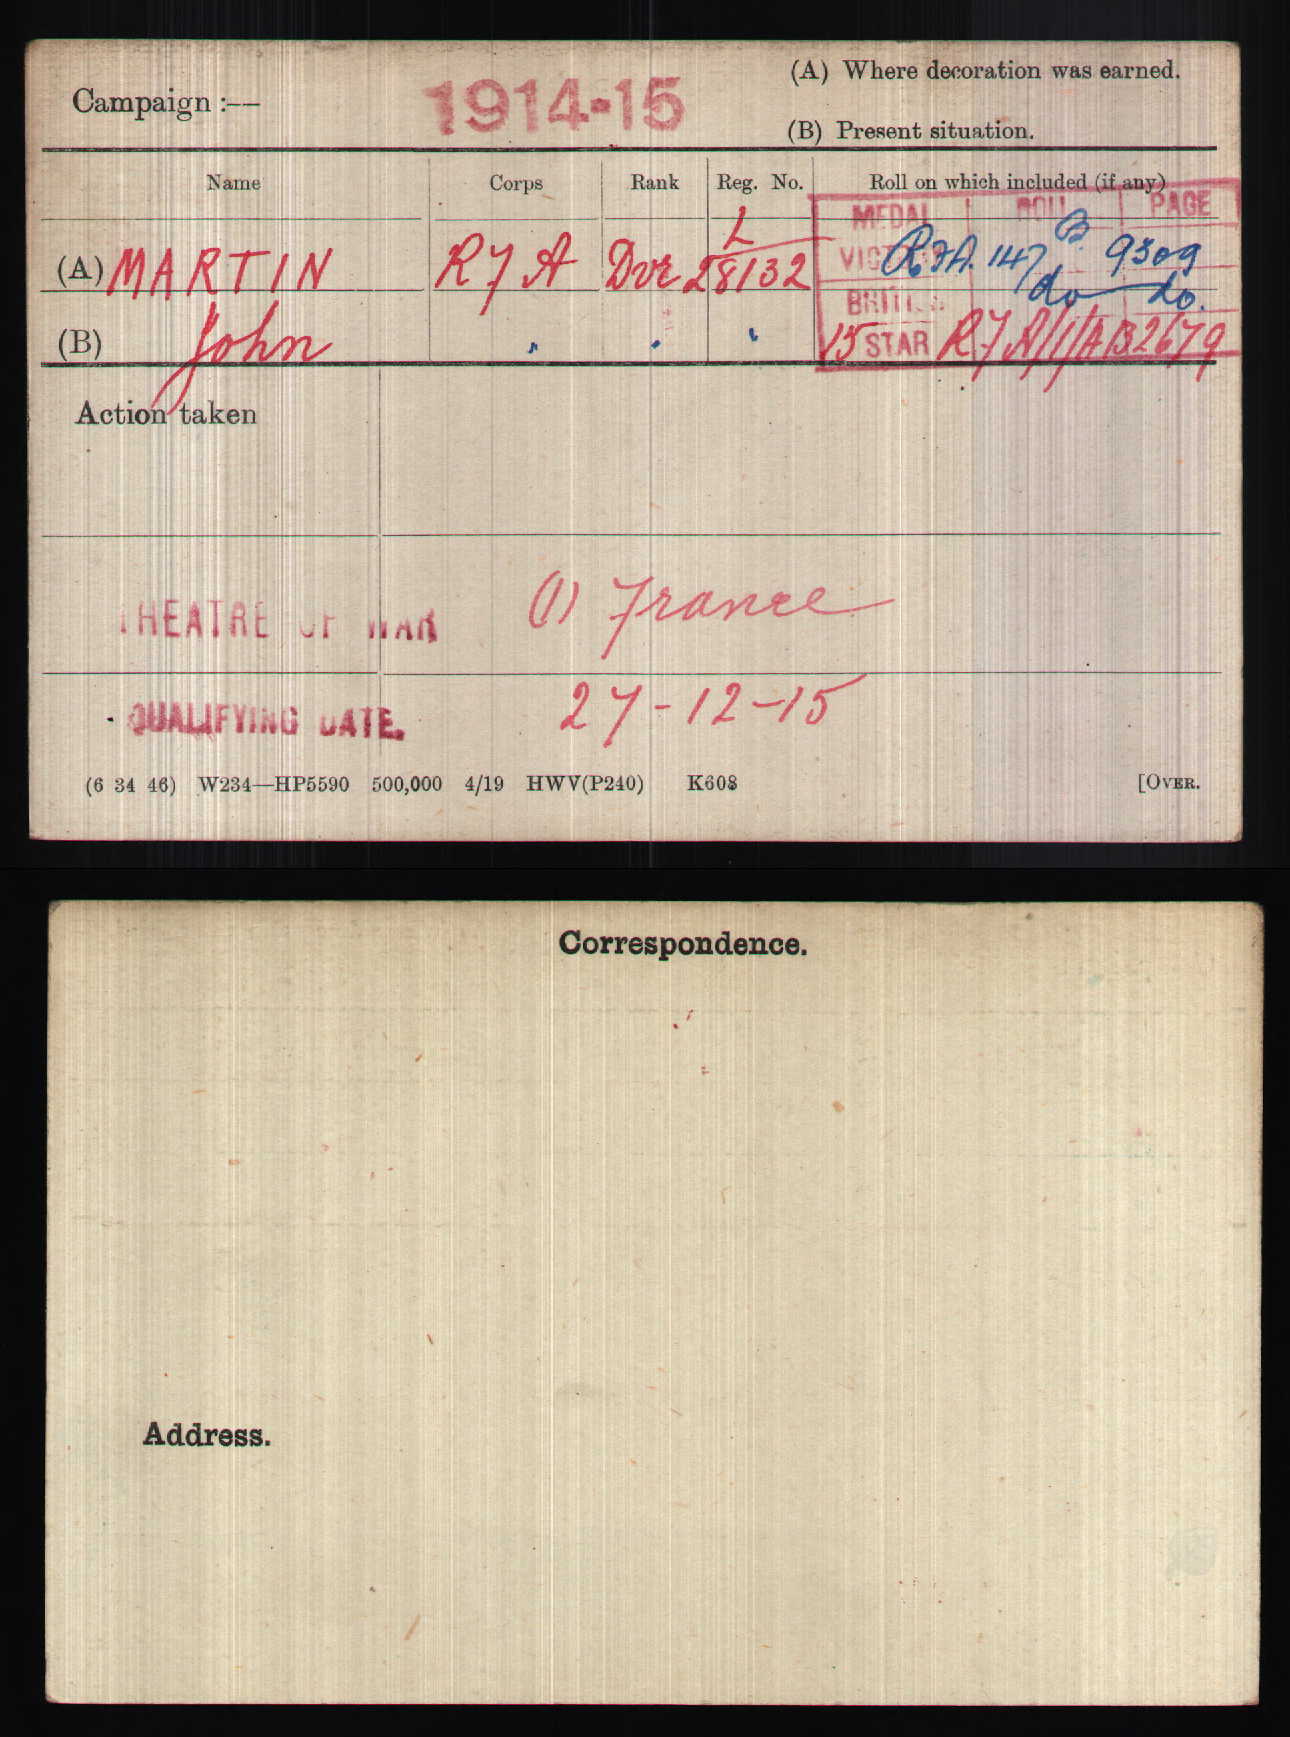 Campaign :—
1914-15
(A) Where decoration was earned.
(B) Present situation.
Name Corps Rank Reg. No. Roll on which included (if any)
MEDAL ROLL PAGE
L
(A) MARTIN RFA Dvr 28132 VICTORY RFA. 147 B 9309
BRITISH do do.
(B) John " " " 15 STAR RFA/1/AB 2679
Action taken
THEATRE OF WAR (1) France
QUALIFYING DATE. 27-12-15
(6 34 46) W234—HP5590 500,000 4/19 HWV(P240) K608 [OVER.
Correspondence.
Address.